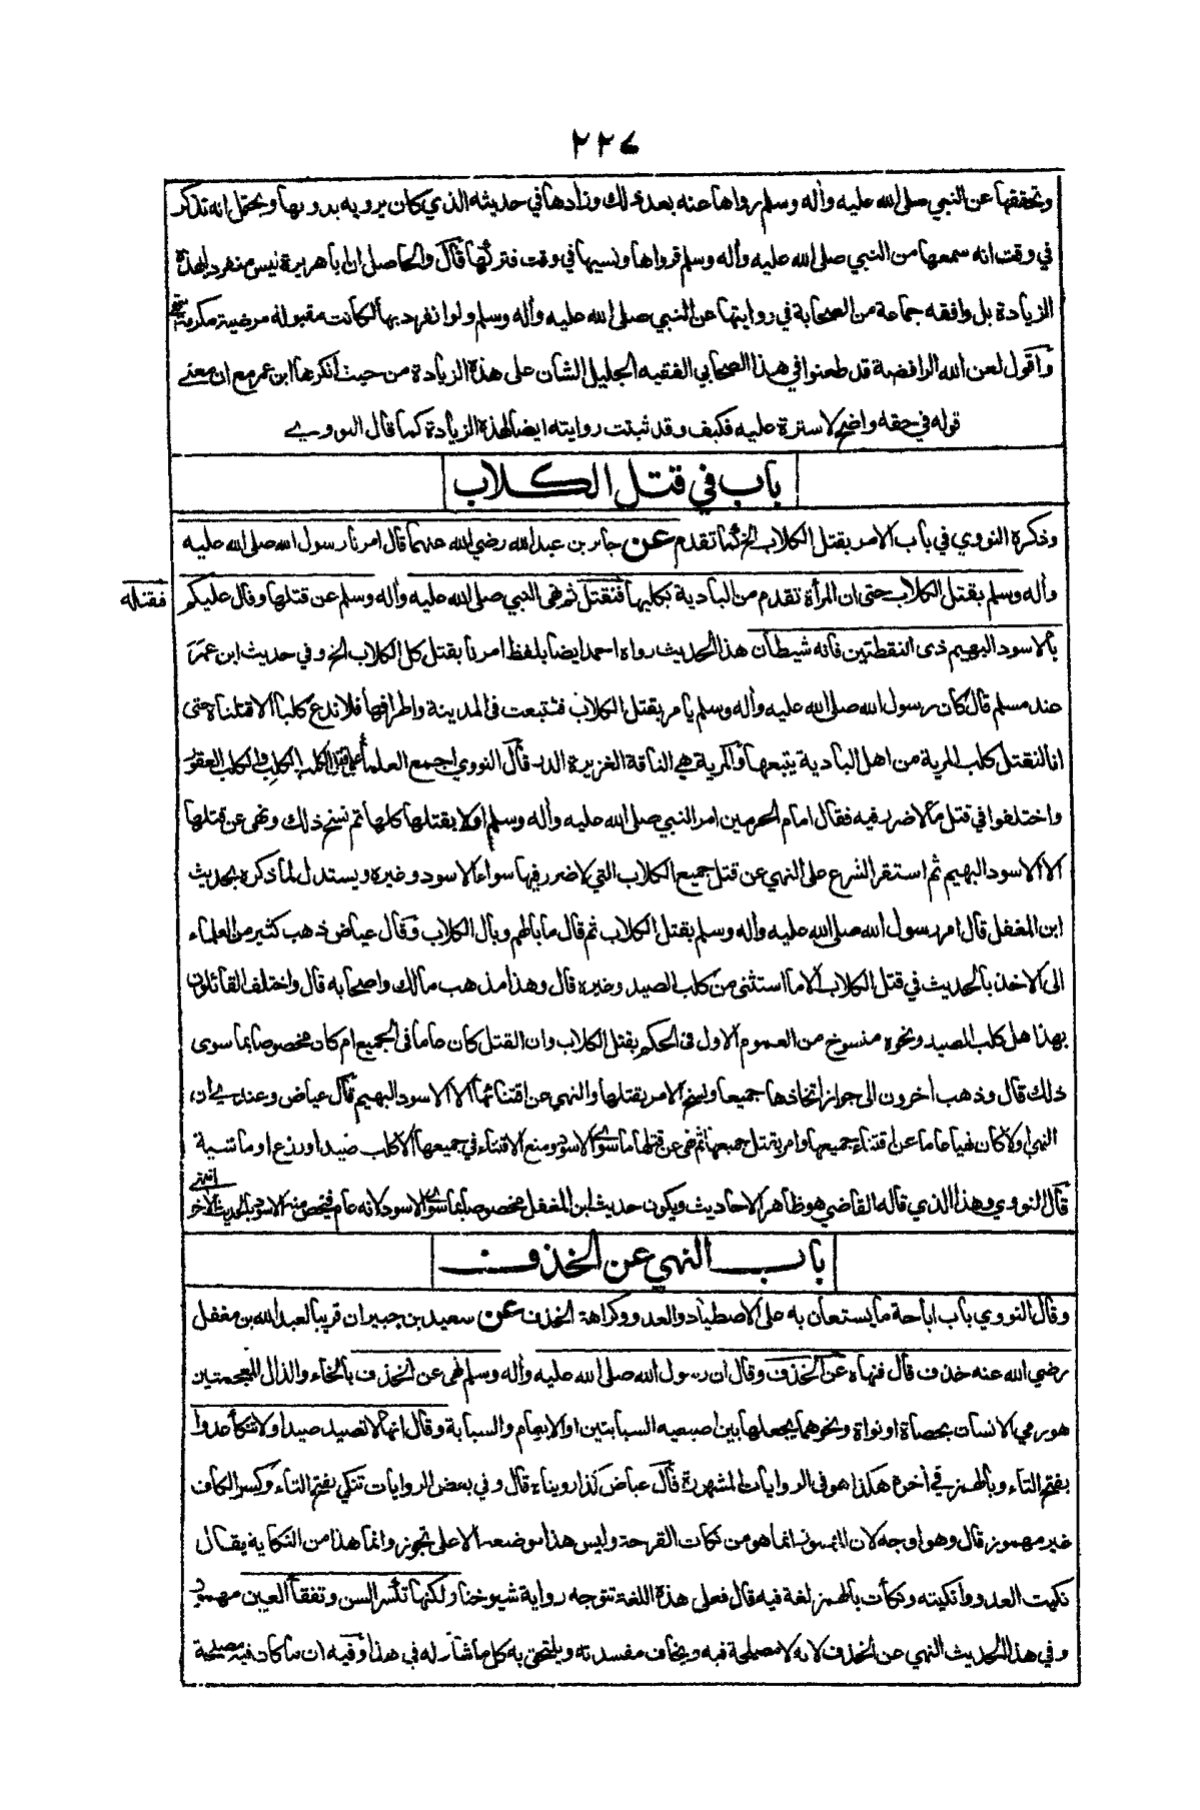 ٢٢٧
وتحققها عن النبي صلى الله عليه وأله وسلم رواها عنه بعد ذلك وزادها في حديثه الذي كان يرويه بدونها ويحتمل انه تذكر
في وقت انه سمعها من النبي صلى الله عليه وأله وسلم فرواها ونسيها في وقت فتركها قال والحاصل ان ابا هريرة ليس منفردا بهذة
الزيادة بل وافقه جماعة من الصحابة في روايتها عن النبي صلى الله عليه وأله وسلم ولو انفرد بها لكانت مقبولة مرضية مكرمة انتهى
واقول لعن الله الرافضة قد طعنوا في هذا الصحابي الفقيه الجليل الشان على هذة الزيادة من حيث انكرها ابن عمر مع ان معنى
قوله في حقه واضح لا سترة عليه فكيف وقد ثبتت روايته ايضا لهذة الزيادة كما قال النووي
باب في قتل الكلاب
وذكرة النووي في باب الامر بقتل الكلاب الخ كما تقدم عن جابر بن عبد الله رضي الله عنهما قال امرنا رسول الله صلى الله عليه
وأله وسلم بقتل الكلاب حتى ان المرأة تقدم من البادية بكلبها فنقتل ثم نهى النبي صلى الله عليه وأله وسلم عن قتلها وقال عليكم
فقتله
بالاسود البهيم ذى النقطتين فانه شيطان هذا الحديث رواه احمد ايضا بلفظ امرنا بقتل كل الكلاب الخ وفي حديث ابن عمر
عند مسلم قال كان رسول الله صلى الله عليه وأله وسلم يامر بقتل الكلاب فتتبعت في المدينة واطرافها فلا ندع كلبا الا قتلناه حتى
انا لنقتل كلب المرية من اهل البادية يتبعها والمرية هي الناقة الغزيرة الدر قال النووي اجمع العلماء على قتل الكلب الكلب والكلب العقور
واختلفوا في قتل ما لا ضرر فيه فقال امام الحرمين امر النبي صلى الله عليه وأله وسلم اولا بقتلها كلها ثم نسخ ذلك ونهى عن قتلها
الا الاسود البهيم ثم استقر الشرع على النهي عن قتل جميع الكلاب التي لا ضرر فيها سواء الاسود وغيرة ويستدل لما ذكرة بحديث
ابن المغفل قال امر رسول الله صلى الله عليه وأله وسلم بقتل الكلاب ثم قال ما بالهم وبال الكلاب وقال عياض ذهب كثير من العلماء
الى الاخذ بالحديث في قتل الكلاب الا ما استثنى من كلب الصيد وغيره قال وهذا مذهب مالك واصحابه قال واختلف القائلون
بهذا هل كلب الصيد ونحوه منسوخ من العموم الاول في الحكم بقتل الكلاب وان القتل كان عاما في الجميع ام كان مخصوصا بما سوى
ذلك قال وذهب أخرون الى جواز اتخاذها جميعا ونسخ الامر بقتلها والنهي عن اقتنائها الا الاسود البهيم قال عياض وعندي ان
النهي اولا كان نهيا عاما عن اقتناء جميعها وامر بقتل جميعها ثم نهى عن قتلها ما سوى الاسود ومنع الاقتناء في جميعها الا كلب صيد او زرع او ماشية
قال النووي وهذا الذي قاله القاضي هو ظاهر الاحاديث ويكون حديث ابن المغفل مخصوصا بما سوى الاسود لانه عام فيخص منه الاسود بالحديث الأخر انتهى
باب النهي عن الخذف
وقال النووي باب اباحة ما يستعان به على الاصطياد والعدو وكراهة الخذف عن سعيد بن جبير ان قريبا لعبد الله بن مغفل
رضي الله عنه خذف قال فنهاه عن الخذف وقال ان رسول الله صلى الله عليه وأله وسلم نهى عن الخذف بالخاء والذال المعجمتين
هو رمي الانسان بحصاة او نواة ونحوهما يجعلها بين اصبعيه السبابتين او الابهام والسبابة وقال انها لا تصيد صيدا ولا تنكأ عدوا
بفتح التاء وبالهمز في أخره هكذا هو في الروايات المشهورة قال عياض كذا رويناه قال وفي بعض الروايات تنكي بفتح التاء وكسر الكاف
غير مهموز قال وهو اوجه لان المهموز انما هو من نكات القرحة وليس هذا موضعه الا على تجوز وانما هذا من النكاية يقال
نكيت العدو وانكيته ونكأت بالهمز لغة فيه قال فعلى هذة اللغة تتوجه رواية شيوخنا ولكنها تكسر السن وتفقأ العين مهموز
وفي هذا الحديث النهي عن الخذف لانه لا مصلحة فيه ويخاف مفسدته ويلتحق به كل ما شاركه في هذا وفيه ان ما كان فيه مصلحة